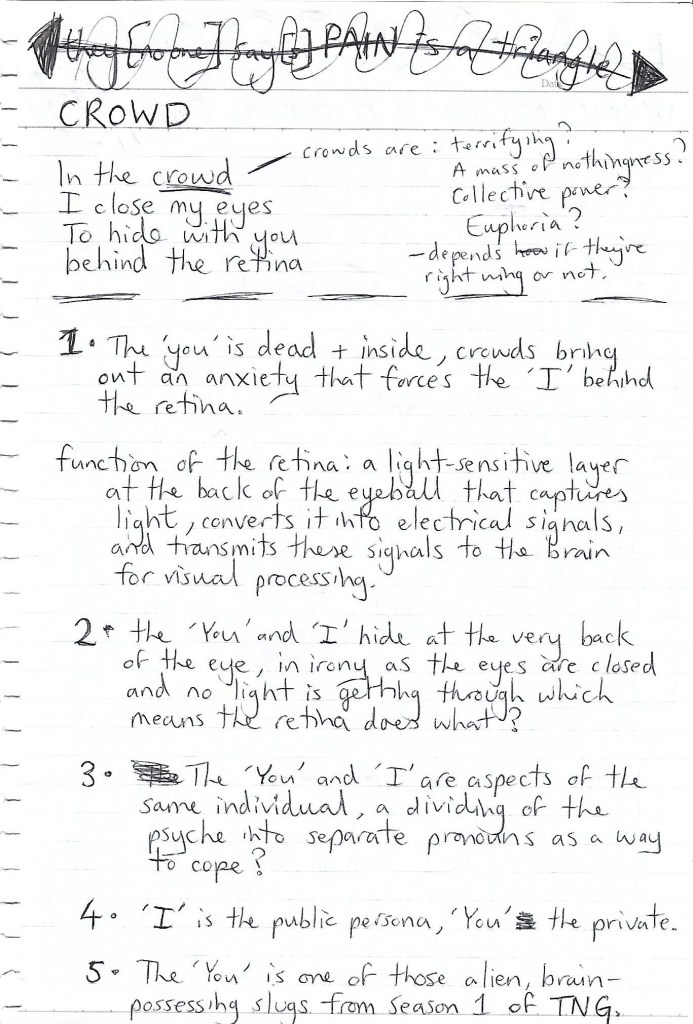 they [no one] say[s] PAIN is a triangle
CROWD
In the crowd
I close my eyes
To hide with you
behind the retina
crowds are: terrifying?
A mass of nothingness?
Collective power?
Euphoria?
- depends how if they're
right wing or not.
1. The 'you' is dead + inside, crowds bring
out an anxiety that forces the 'I' behind
the retina.
function of the retina: a light-sensitive layer
at the back of the eyeball that captures
light, converts it into electrical signals,
and transmits these signals to the brain
for visual processing.
2. the 'You' and 'I' hide at the very back
of the eye, in irony as the eyes are closed
and no light is getting through which
means the retina does what?
3. The 'You' and 'I' are aspects of the
same individual, a dividing of the
psyche into separate pronouns as a way
to cope?
4. 'I' is the public persona, 'You' the private.
5. The 'You' is one of those alien, brain-
possessing slugs from season 1 of TNG.